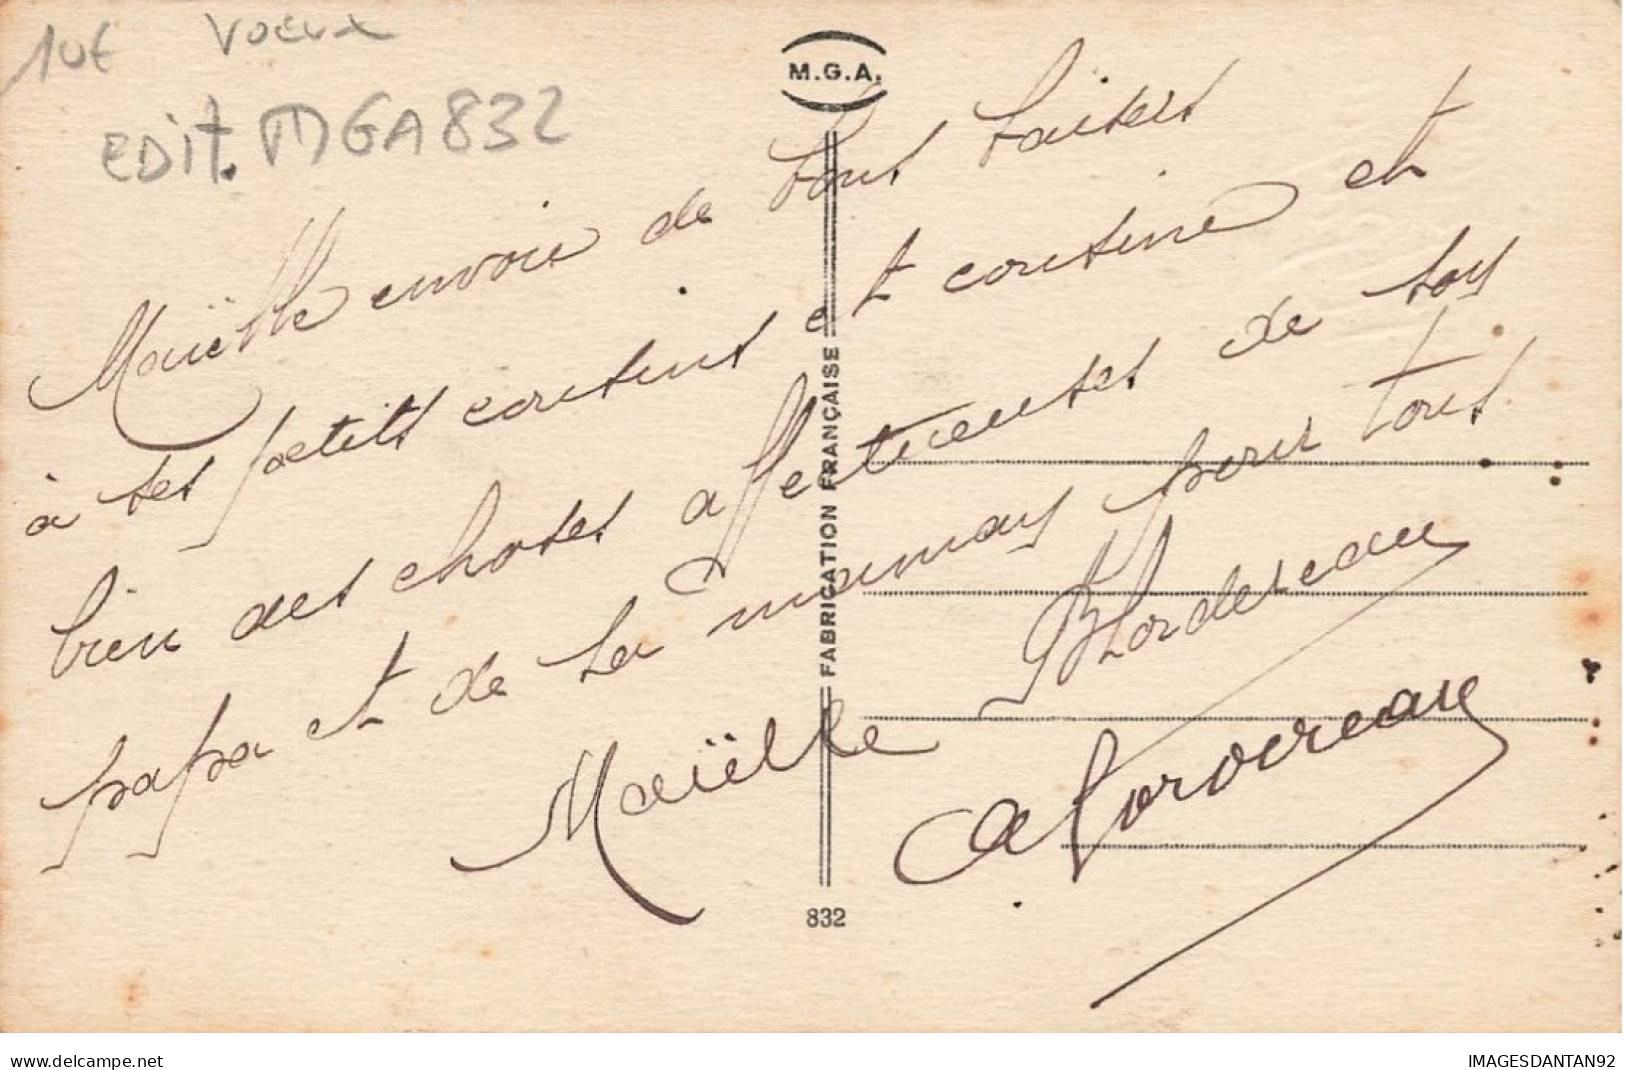 10€ voeux
EDIT. MGA 832
M.G.A.
Maëlle envoie de bons baisers
à ses petits cousins et cousine et
bien des choses affectueuses de son
papa et de sa maman pour tous
Maëlle
FABRICATION FRANÇAISE
832
www.delcampe.net
IMAGESDANTAN92